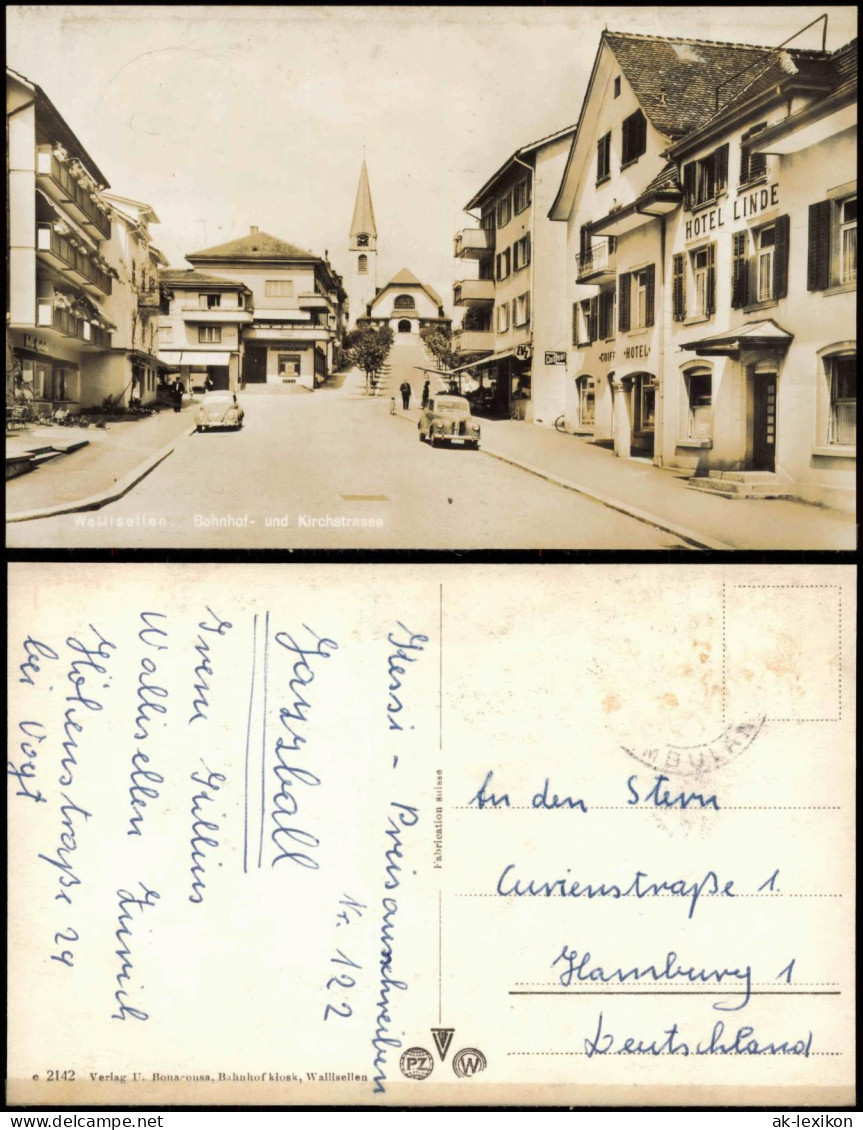 HOTEL LINDE
COIFF
HOTEL
Wallisellen. Bahnhof- und Kirchstrasse
Hessi - Preisausschreiben
Nr. 122
Jazzball
Irene Gillius
Wallisellen Zürich
Höhenstraße 24
bei Vogt
Fabrication suisse
AMBULAN
An den Stern
Curienstraße 1.
Hamburg 1
Deutschland
PZ
W
e 2142 Verlag U. Bonacousa, Bahnhofkiosk, Wallisellen
www.delcampe.net
ak-lexikon